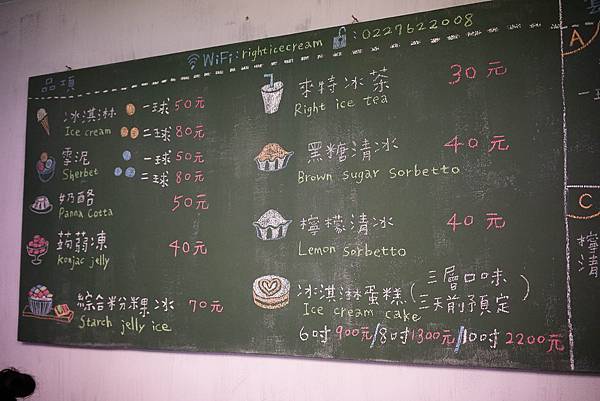 WiFi: righticecream : 0227622008
品項
冰淇淋 一球 50元
Ice cream 二球 80元
雪泥 一球 50元
Sherbet 二球 80元
奶酪 50元
Panna Cotta
蒟蒻凍 40元
Konjac jelly
綜合粉粿冰 70元
Starch jelly ice
來特冰茶 30元
Right ice tea
黑糖清冰 40元
Brown sugar sorbetto
檸檬清冰 40元
Lemon sorbetto
冰淇淋蛋糕(三層口味 三天前預定)
Ice cream cake
6吋900元/8吋1300元/10吋2200元
A
一
C
檸
清